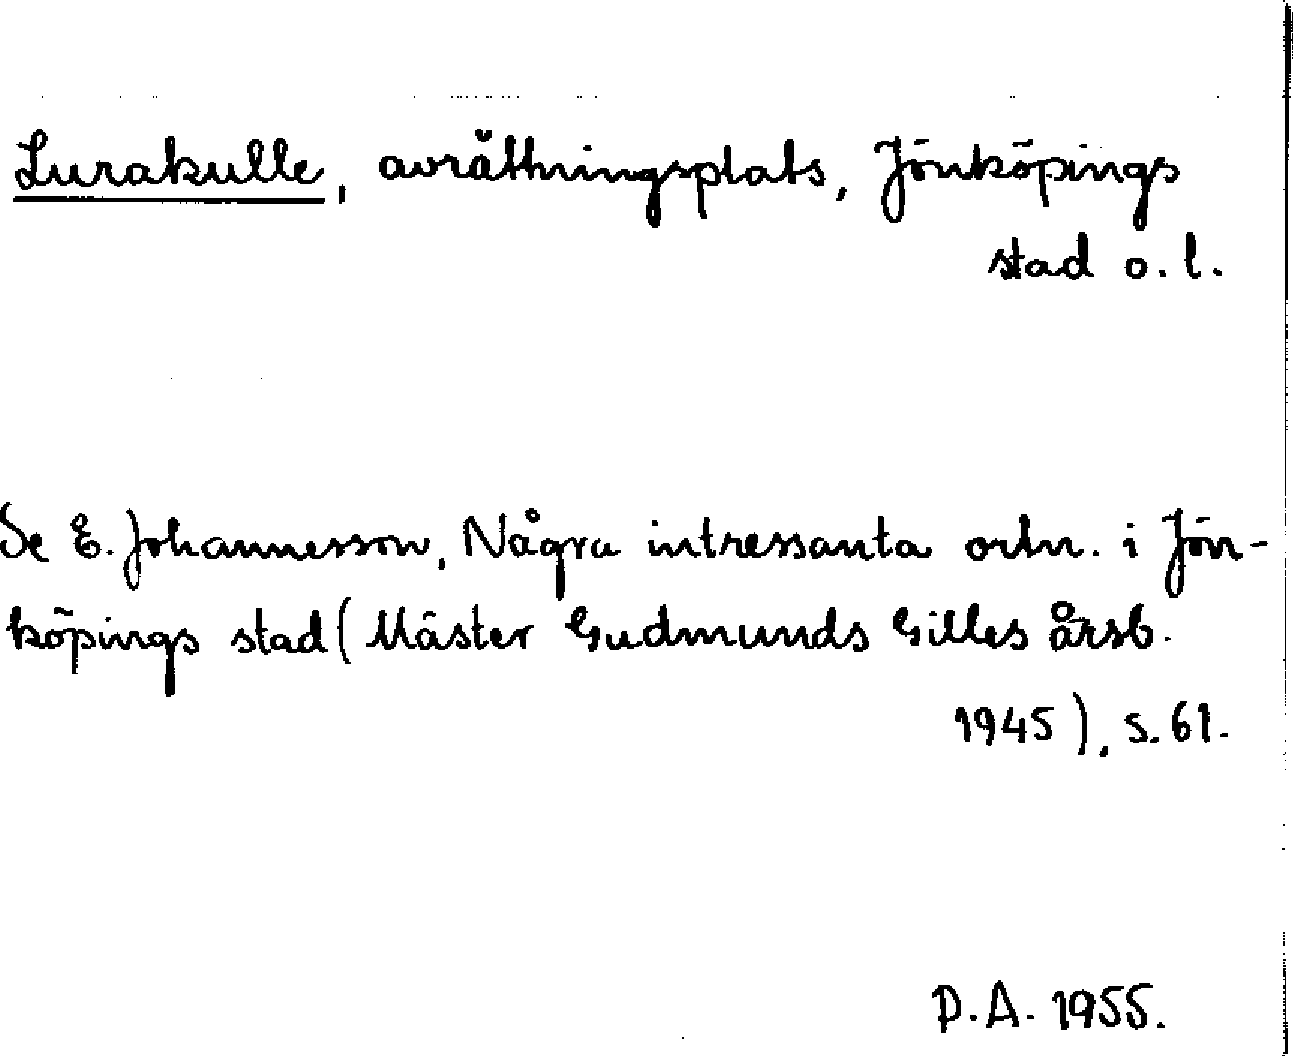 Lurakulle, avrättningsplats, Jönköpings
stad o. l.
Se E. Johannesson, Några intressanta ortn. i Jön-
köpings stad (Mäster Gudmunds Gilles årsb.
1945), s. 61.
P.A. 1955.